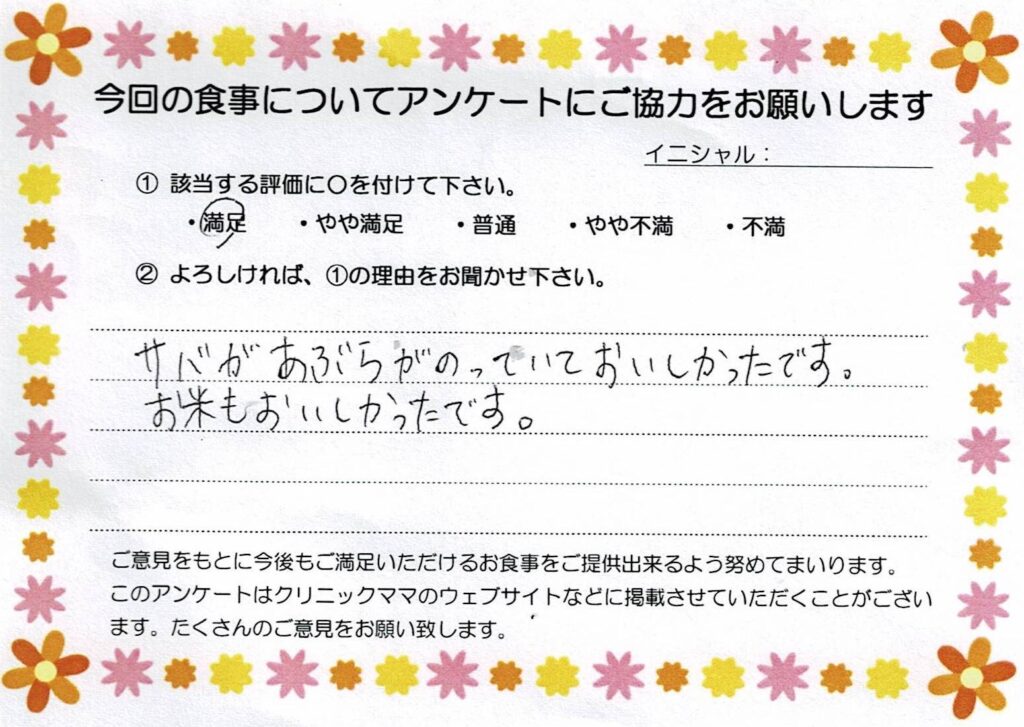 今回の食事についてアンケートにご協力をお願いします
イニシャル：
① 該当する評価に〇を付けて下さい。
・満足 ・やや満足 ・普通 ・やや不満 ・不満
② よろしければ、①の理由をお聞かせ下さい。
サバがあぶらがのっていておいしかったです。
お米もおいしかったです。
ご意見をもとに今後もご満足いただけるお食事をご提供出来るよう努めてまいります。
このアンケートはクリニックママのウェブサイトなどに掲載させていただくことがござい
ます。たくさんのご意見をお願い致します。